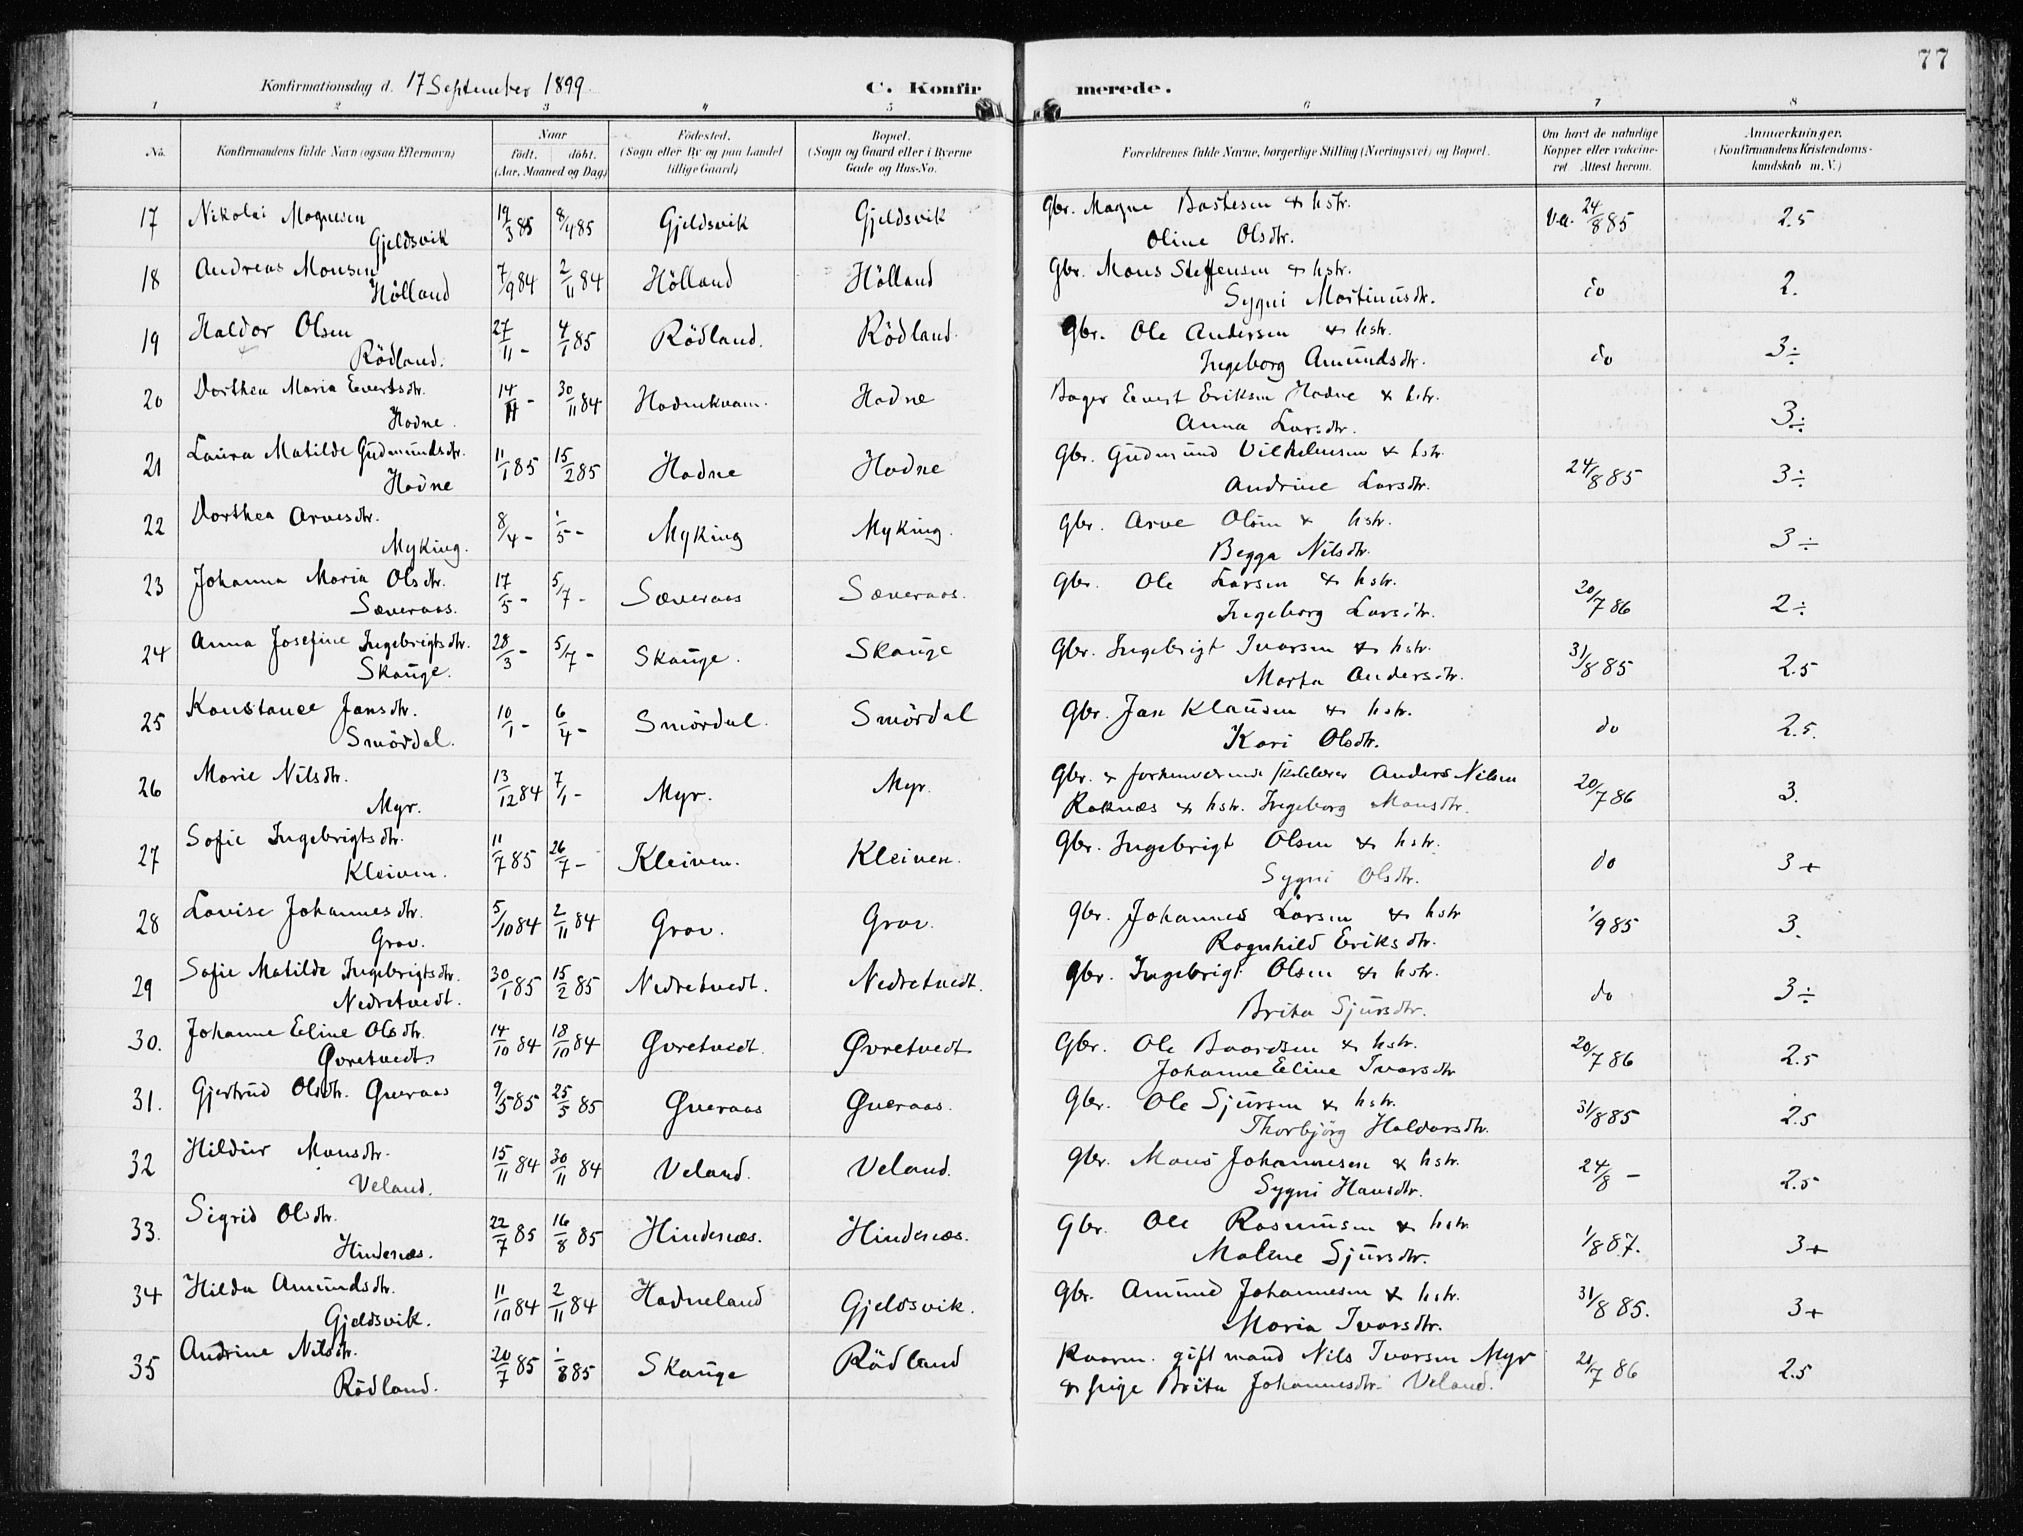 77
Konfirmationsdag d. 17 September 1899. C. Konfirmerede.
1 2 3 4 5 6 7 8
No. Konfirmandens fulde Navn (ogsaa Efternavn) Naar født. døbt. (Aar, Maaned og Dag) Fødested. (Sogn eller By og paa Landet tillige Gaard) Bopæl. (Sogn og Gaard eller i Byerne Gade og Hus-No. Forældrenes fulde Navne, borgerlige Stilling (Næringsvei) og Bopæl. Om havt de naturlige Kopper eller vaccineret. Attest herom. Anmærkninger. (Konfirmandens Kristendomskundskab m. V.)
17 Nikolai Magnesen 19/3 85 8/4 85 Gjeldsvik Gjeldsvik Gbr. Magne Bastesen & hstr. Va. 24/8 85 2.5
Gjeldsvik Oline Olsdtr.
18 Andreas Monsen 7/9 84 2/11 84 Hölland Hölland Gbr. Mons Steffensen & hstr. do 2.
Hölland Sygni Martinusdtr.
19 Haldor Olsen 27/11 - 4/1 85 Rödland. Rödland. Gbr. Ole Andersen & hstr. do 3÷
Rödland. Ingeborg Amundsdtr.
20 Dorthea Maria Evertsdtr. 14/11 - 30/11 84 Hodnekvam. Hodne Bager Evert Eriksen Hodne & hstr. 3÷
Hodne. Anna Larsdtr.
21 Laura Matilde Gudmundsdtr. 11/1 85 15/2 85 Hodne Hodne Gbr. Gudmund Vilhelmsen & hstr. 24/8 85 3÷
Hodne Andrine Larsdtr.
22 Dorthea Arvesdtr. 8/4 - 1/5 - Myking Myking. Gbr. Arve Olsen & hstr. 3÷
Myking. Begga Nilsdtr.
23 Johanna Maria Olsdtr. 17/5 - 5/7 - Sæveraas Sæveraas. Gbr. Ole Larsen & hstr. 20/7 86 2÷
Sæveraas. Ingeborg Larsdtr.
24 Anna Josefine Ingebrigtsdtr. 28/3 - 5/7 - Skauge. Skauge Gbr. Ingebrigt Ivarsen & hstr. 31/8 85 2.5
Skauge. Marta Andersdtr.
25 Konstance Jansdtr. 10/1 - 6/4 - Smördal. Smördal Gbr. Jan Klausen & hstr. do 2.5.
Smördal. Kari Olsdtr.
26 Marie Nilsdtr. 13/12 84 7/1 - Myr. Myr. Gbr. & forhenværende skolelærer Anders Nilsen 20/7 86 3.
Myr. Roknæs & hstr. Ingeborg Monsdtr.
27 Sofie Ingebrigtsdtr. 11/7 85 26/7 - Kleiven. Kleiven. Gbr. Ingebrigt Olsen & hstr. do 3+
Kleiven. Sygni Olsdtr.
28 Lovise Johannesdtr. 5/10 84 2/11 84 Grov. Grov. Gbr. Johannes Larsen & hstr 1/9 85 3.
Grov. Ragnhild Eriksdtr.
29 Sofie Matilde Ingebrigtsdtr. 30/1 85 15/2 85 Nedretvedt. Nedretvedt. Gbr. Ingebrigt Olsen & hstr. do 3÷
Nedretvedt. Brita Sjursdtr.
30. Johanne Eline Olsdtr. 14/10 84 18/10 84 Øvretvedt. Øvretvedt Gbr. Ole Baardsen & hstr. 20/7 86 2.5
Øvretvedt Johanne Eline Ivarsdtr
31. Gjertrud Olsdtr. Øveraas 9/5 85 25/5 85 Øveraas Øveraas. Gbr. Ole Sjursen & hstr. 31/8 85 2.5
Thorbjörg Haldorsdtr.
32 Hildur Monsdtr. 15/11 84 30/11 84 Veland. Veland. Gbr. Mons Johannesen & hstr. 24/8 - 2.5
Veland. Sygni Hansdtr.
33. Sigrid Olsdtr. 22/7 85 16/8 85 Hindenæs. Hindenæs. Gbr. Ole Rasmusen & hstr 1/8 87. 3+
Hindenæs. Malene Sjursdtr.
34 Hilda Amundsdtr. 11/10 84 2/11 84 Hodneland Gjeldsvik. Gbr. Amund Johannesen & hstr. 31/8 85. 3+
Gjeldsvik. Maria Ivarsdtr.
35 Andrine Nilsdtr. 20/7 85 1/8 85 Skauge Rödland gift mand Nils Ivarsen Myr 21/7 86 2.5
Rödland. & pige Brita Johannesdtr. Veland.